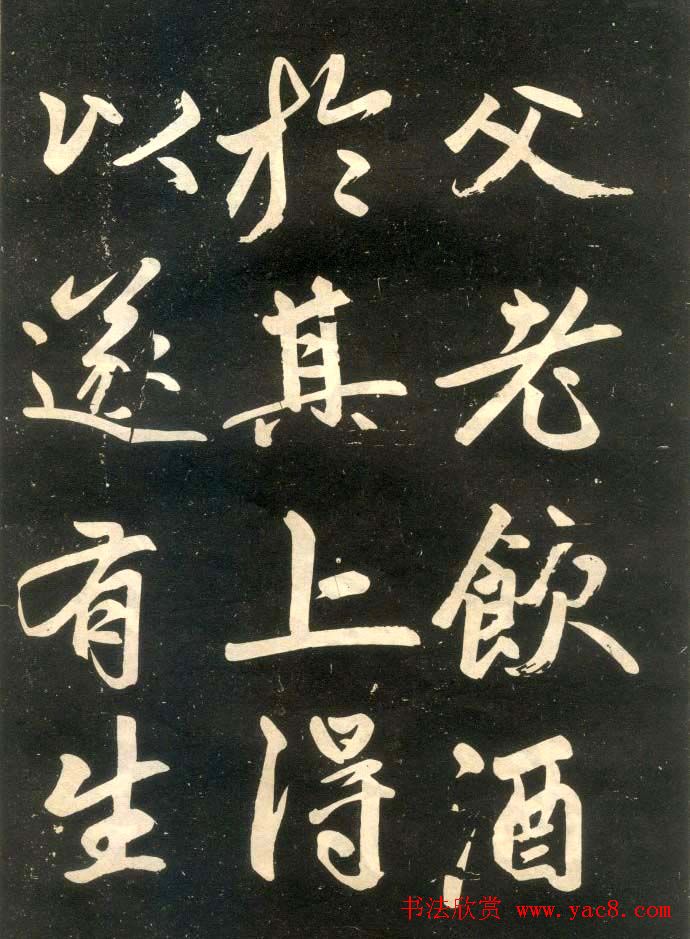 父老飲酒
於其上得
以遂有生
书法欣赏 www.yac8.com